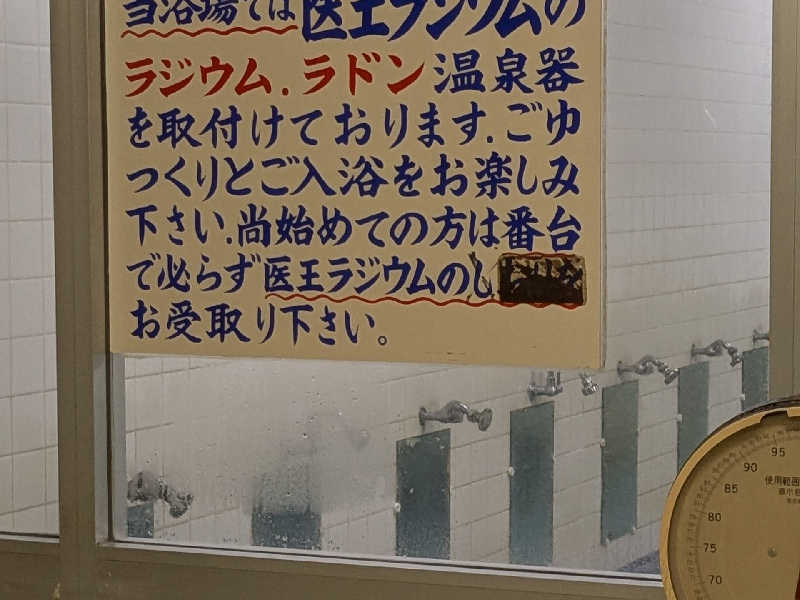 当浴場では医王ラジウムの
ラジウム.ラドン温泉器
を取付けております.ごゆ
っくりとご入浴をお楽しみ
下さい.尚始めての方は番台
で必らず医王ラジウムのし
お受取り下さい。
95
90
85
80
75
70
使用範囲